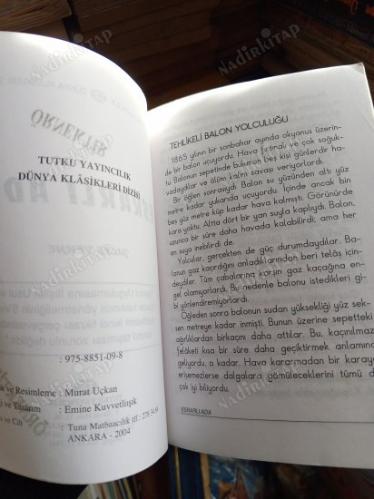 TUTKU YAYINCILIK
DÜNYA KLÂSİKLERİ DİZİSİ
: 975-8851-09-8
ve Resimleme : Murat Uçkan
: Emine Kuvvetlişık
ve Cilt : Tuna Matbaacılık
ANKARA - 2004
TEHLİKELİ BALON YOLCULUĞU
1865 yılının bir sonbahar ayında okyanus üzerin-
de bir balon uçuyordu. Hava fırtınalı ve çok soğuk-
tu. Balonun sepetinde bulunan beş kişi günlerdir ha-
vadaydılar ve ölüm kalım savaşı veriyorlardı.
Bir öğlen sonrasıydı. Balon su yüzünden altı yüz
metre kadar yukarıda uçuyordu. İçinde ancak bin
beş yüz metre küp kadar hava kalmıştı. Görünürde
kara yoktu. Altta dört bir yan suyla kaplıydı. Balon
bir süre daha havada kalabilirdi; ama her
an suya inebilirdi de.
Yolcular, gerçekten de güç durumdaydılar. Ba-
lonun gaz kaçırdığını anladıklarından beri telâş için-
deydiler. Tüm çabalarına karşın gaz kaçağına en-
gel olamıyorlardı. Bu nedenle balonu istedikleri gi-
bi yönlendiremiyorlardı.
Öğleden sonra balonun sudan yüksekliği yüz sek-
sen metreye kadar inmişti. Bunun üzerine sepetteki
ağırlıklardan birkaçını daha attılar. Bu, kaçınılmaz
felâketi kısa bir süre daha geciktirmek anlamına
geliyordu, o kadar. Hava kararmadan bir karaya
erişemezlerse dalgalara gömüleceklerini tümü de
çok iyi biliyordu.
ESRARLI ADA
NADİRKİTAP